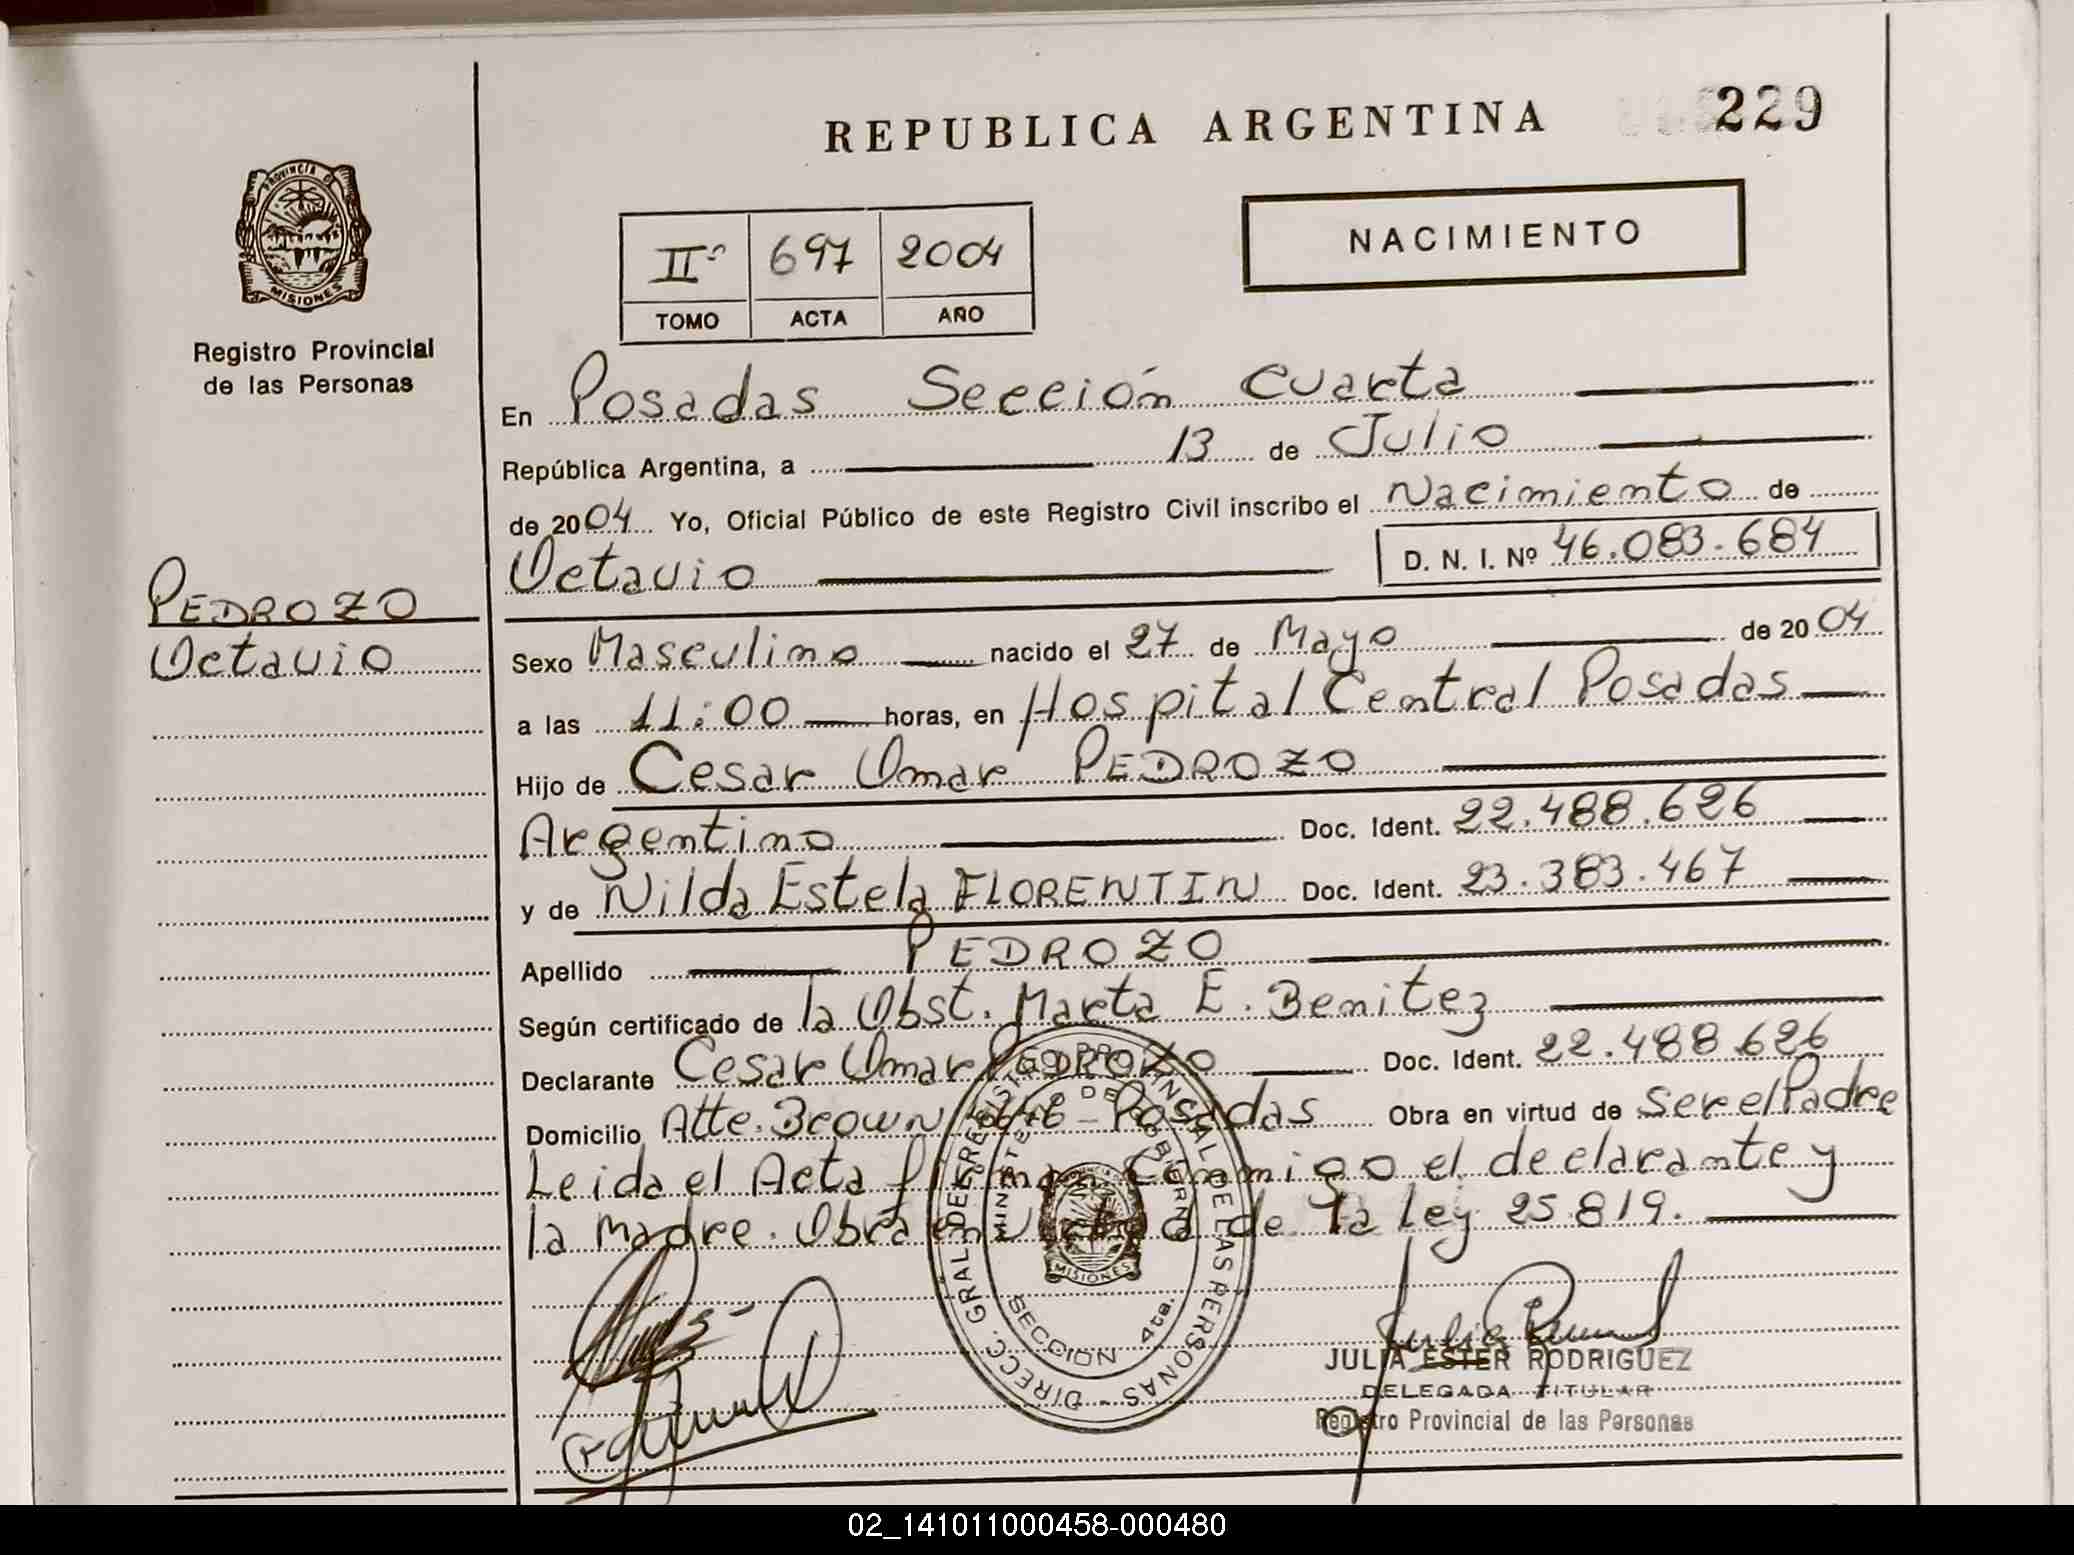 REPUBLICA ARGENTINA
229
PROVINCIA DE
MISIONES
Registro Provincial
de las Personas
IIº 697 2004
TOMO ACTA AÑO
NACIMIENTO
En Posadas Sección Cuarta
República Argentina, a 13 de Julio
de 2004 Yo, Oficial Público de este Registro Civil inscribo el Nacimiento de
Octavio
D. N. I. Nº 46.083.684
PEDROZO
Octavio
Sexo Masculino nacido el 27 de Mayo de 2004
a las 11:00 horas, en Hospital Central Posadas
Hijo de Cesar Omar PEDROZO
Argentino Doc. Ident. 22.488.626
y de Nilda Estela FLORENTIN Doc. Ident. 23.383.467
Apellido PEDROZO
Según certificado de la Obst. Marta E. Benitez
Declarante Cesar Omar PEDROZO Doc. Ident. 22.488.626
Domicilio Atte. Brown - Posadas Obra en virtud de ser el Padre
Leida el Acta firman conmigo el declarante y
la madre. Obra en virtud de la ley 25.819.
DIRECC. GRAL. DE REGISTRO PROVINCIAL DE LAS PERSONAS
MINISTERIO DE GOBIERNO
MISIONES
SECCION 4ta.
JULIA ESTER RODRIGUEZ
DELEGADA TITULAR
Registro Provincial de las Personas
02_141011000458-000480